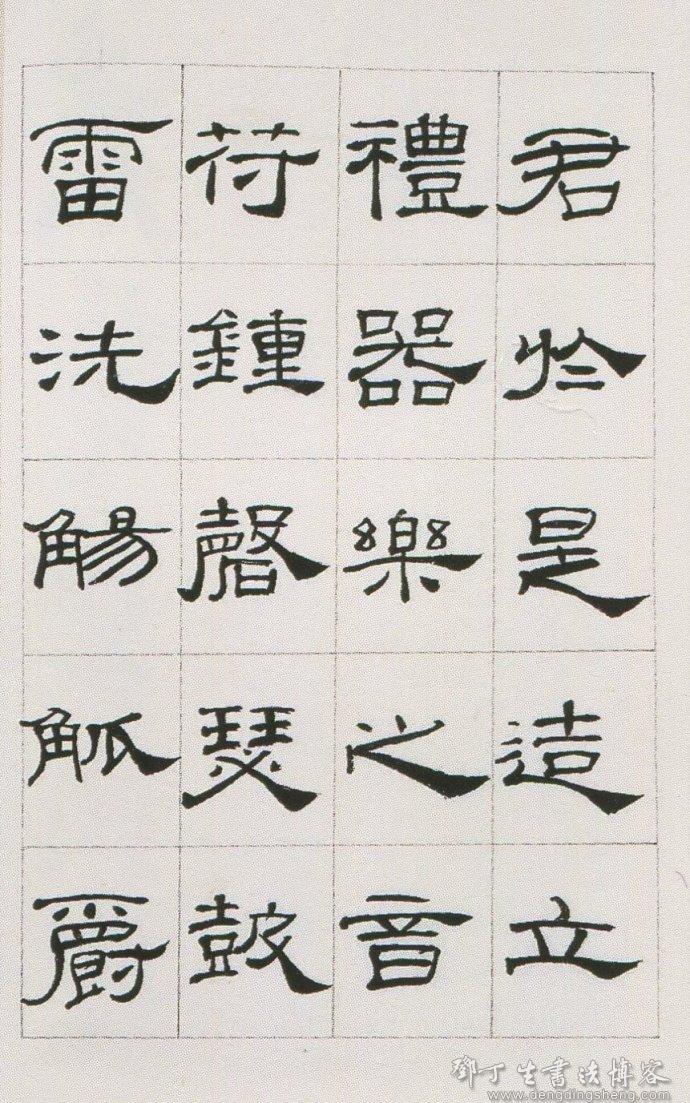 君於是造立
禮器樂之音
符鍾磬瑟鼓
雷洗觴觚爵
鄧丁生書法博客
www.dengdingsheng.com